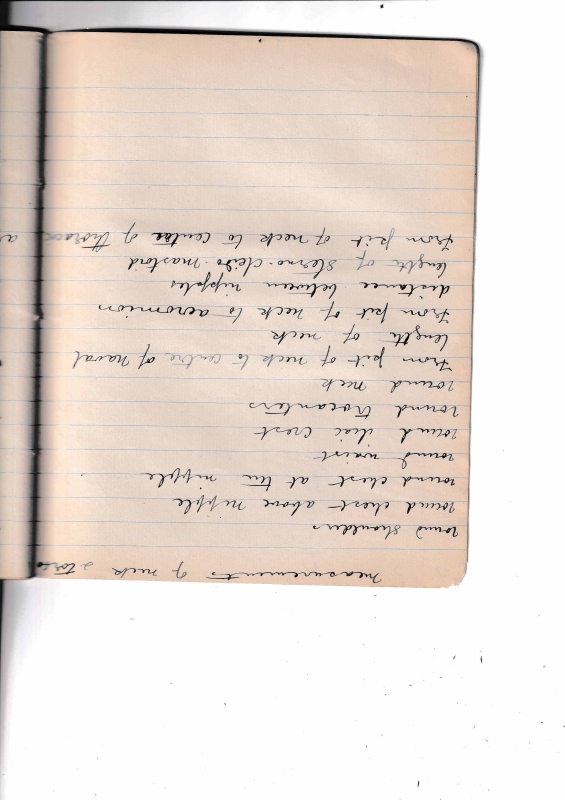 measurements of neck & torso
round shoulders
round chest above nipple
round chest at the nipple
round waist
round iliac crest
round trocanters
round neck
from pit of neck to centre of naval
length of neck
from pit of neck to acromion
distance between nipples
length of sterno-cleido-mastoid
from pit of neck to centre of thorax